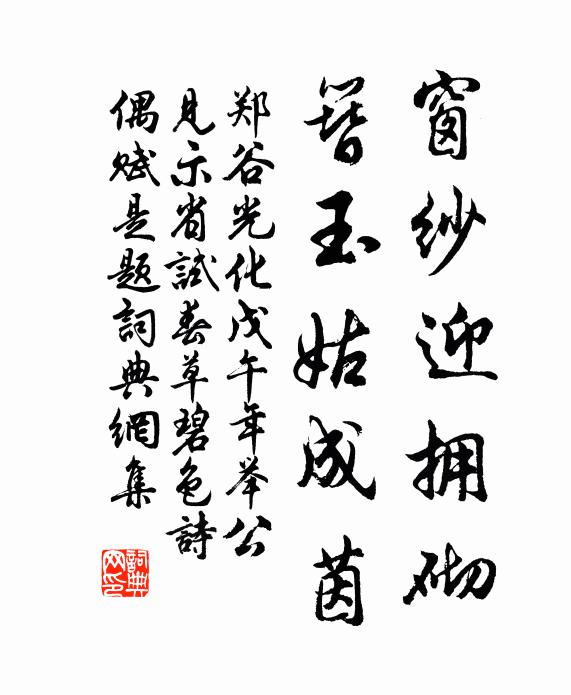 窗纱迎拥砌
簪玉姑成茵
郑谷光化戊午年举公
見示省試春草碧色詩
偶赋是題詞典網集
詞典网印